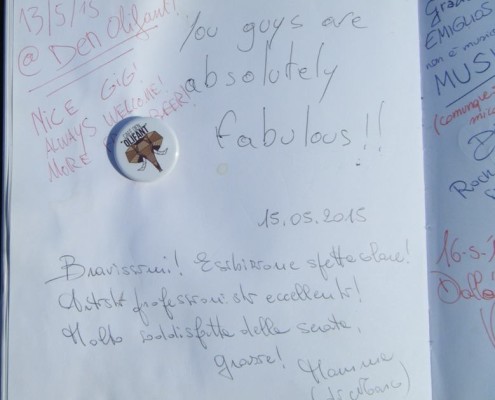 13/5/15
@ Den Olifant!
NiCE GiG!
ALWAYS WELCOME!
MORE BEER!!
OLIFANT
You guys are
absolutely
fabulous!!
15.05.2015
Bravissimi! Esibizione spettacolare!
Artisti professionisti eccellenti!
Molto soddisfatta della serata,
grazie!
Mamma
EMIGLIOS
non è music
MUSI
(comunque
Rock
16-5-1
Dalla